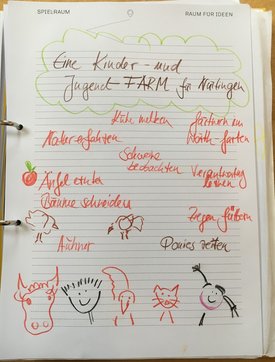 SPIELRAUM
RAUM FÜR IDEEN
Eine Kinder- und
Jugend-FARM für Nürtingen
Kühe melken
gärtnern im
Natur erfahren
Schweine
beobachten
Verantwortung
lernen
Äpfel ernten
Bäume schneiden
Ziegen füttern
Hühner
Ponies reiten